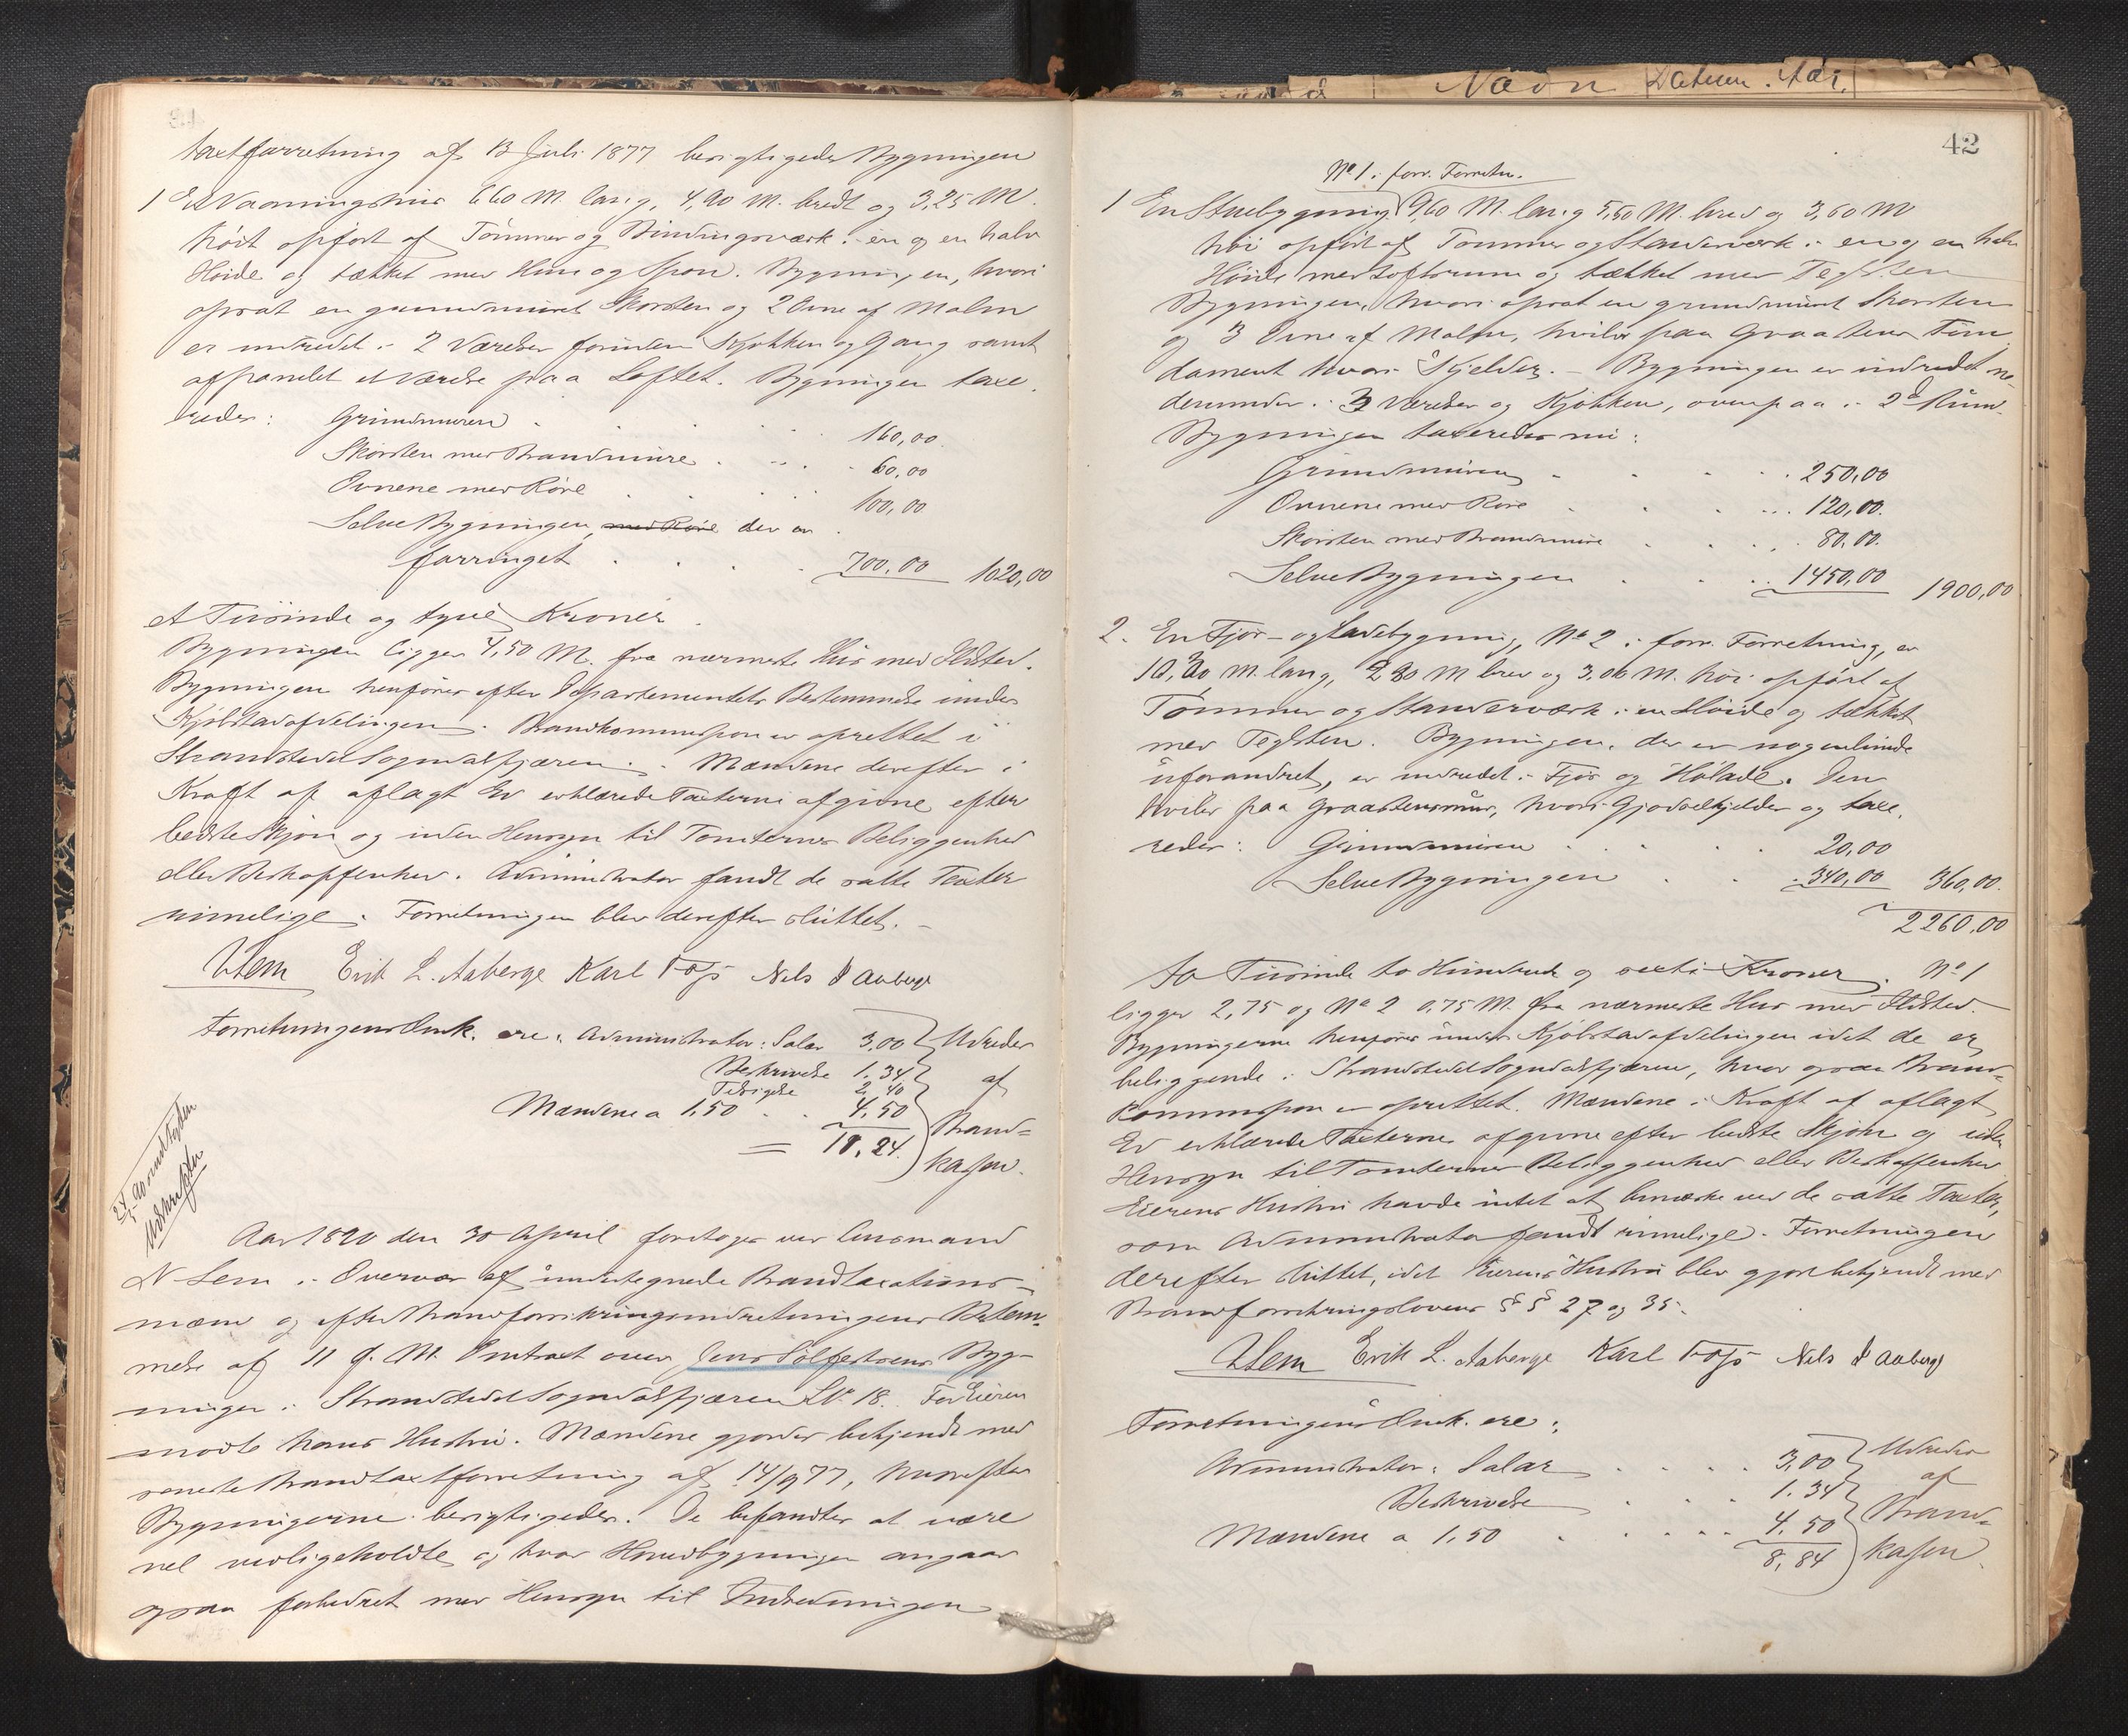 taxtforretning af 13 Juli 1877 berigtigedes Bygningen
1 Et Vaaningshus 6,60 M. lang, 4,90 M. bredt og 3,25 M.
høit opført af Tømmer og Bindingsværk i en og en halv
Høide og tækket med Hun og Spon. Bygningen, hvori
opsat en grundmuret Skorsten og 2 Ovne af Malm
er indredet i 2 Værelser foruden Kjøkken og Gang samt
afpanelet et Værelse paa Loftet. Bygningen taxe-
redes: Grundmuren 160,00
Skorsten med Brandmure 60,00
Ovnene med Røre 100,00
Selve Bygningen, med Røre der er
forringet 700,00 1020,00
Et Tusinde og tyve Kroner.
Bygningen ligger 4,50 M. fra nærmeste Hus med Ildsted.
Bygningen henføres efter Departementets Bestemmelse under
Kjøbstadafdelingen. Brandkommission er oprettet i
Strandstedet Sogndalsfjæren. Mændene derefter i
Kraft af aflagt Ed erklærede Taxterne afgivne efter
bedste Skjøn og uden Hensyn til Tomternes Beliggenhed
eller Beskaffenhed. Administrator fandt de satte Taxter
rimelige. Forretningen blev derefter sluttet.
NSem Erik L. Aaberge Karl Foss Nils J Aaberge
Forretningens Omk. ere: Administrator: Salær 3,00 Udredes
Beskrivelse 1.34 af
2,40
Mændene a 1,50 4,50 Brand-
= 11.24. kassen.
24/5 90 indstyden
Udskrifter
Aar 1890 den 30 April foretoges ved Lensmand
N Sem i Overvær af undertegnede Brandtaxations-
mænd og efter Brandforsikringsindretningens Bestem-
melse af 11 d. M. Omtaxt over Jens Sølfestsens Byg-
ninger i Strandstedet Sogndalsfjæren LNo 18. For Eieren
mødte hans Hustru. Mændene gjordes bekjendt med
seneste Brandtaxtforretning af 14/9 77, hvorefter
Bygningerne berigtigedes. De befandtes at være
vel vedligeholdte og hvad Hovedbygningen angaar
ogsaa forbedret med Hensyn til Indredningen
42
Navn Datum. Aar.
No 1 i forr. Forretn.
1 En Stuebygning 9,60 M. lang 5,50 M. bred og 3,60 M
høi opført af Tømmer og Standerværk i en og en halv
Høide med Loftsrum og tækket med Teglsten
Bygningen, hvori opsat en grundmuret Skorsten
og 3 Ovne af Malm, hviler paa Graastens Fun-
dament hvori Kjelder. - Bygningen er indredet ne-
denunder i 3 Værelser og Kjøkken, ovenpaa i 2de Rum.
Bygningen taxeredes nu:
Grundmuren 250,00
Ovnene med Røre 120,00.
Skorsten med Brandmure 80,00.
Selve Bygningen 1450,00 1900,00
2. En Fjøs- og Ladebygning, No 2 i forr. Forretning, er
M. lang, M bred og 3,00 M. høi opført af
Tømmer og Standerværk i en Høide og tækket
med Teglsten. Bygningen, der er nogenlunde
uforandret, er indredet i Fjøs og Hølade. Den
hviler paa Graastensmur, hvori Gjødselkjelder og taxe-
redes: Grundmuren 20,00
Selve Bygningen 340,00 360,00.
2260,00
to Tusinde to Hundrede og sexti Kroner. No 1
ligger 2,75 og No 2 0,75 M. fra nærmeste Hus med Ildsted.
Bygningerne henføres under Kjøbstadafdelingen idet de er
beliggende i Strandstedet Sogndalsfjæren, hvor ogsaa Brand-
kommission er oprettet. Mændene i Kraft af aflagt
Ed erklærede Taxterne afgivne efter bedste Skjøn og uden
Hensyn til Tomternes Beliggenhed eller Beskaffenhed
Eierens Hustru havde intet at bemærke ved de satte Taxter,
som Administrator fandt rimelige. Forretningen
derefter sluttet, idet Eierens Hustru blev gjort bekjendt med
Brandforsikringslovens §§ 27 og 35.
NSem Erik L. Aaberge Karl Foss Nils J Aaberge
Forretningens Omk. ere:
Administrator: Salær 3,00 Udredes
Beskrivelse 1.34 af
Mændene a 1,50 4,50 Brand-
8,84 kassen.